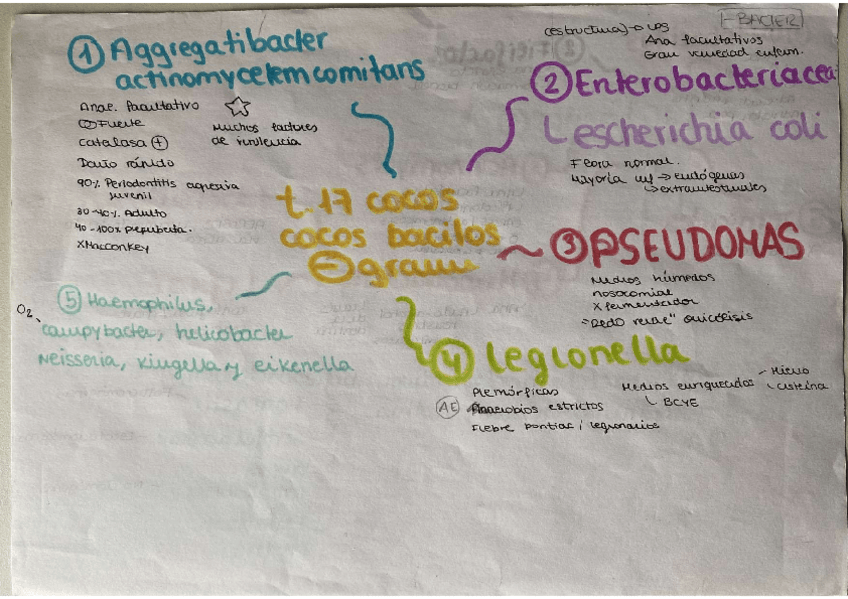 - BACTER
① Aggregatibacter
actinomycetem comitans
Anae. facultativo
Fuente
Catalasa +
Daño rápido
90% Periodontitis agresiva
juvenil
30-40% Adulto
40-100% prepuberta.
X MacConkey
☆
Muchos factores
de virulencia
(estructura) → LPS
Ana facultativos
Gran variedad enferm.
② Enterobacteriacea
escherichia coli
Flora normal.
Mayoría → endógenas
↳ extraintestinales
t.17 cocos
cocos bacilos
⊖ gram
③ PSEUDOMAS
Medios húmedos
nosocomial
X fermentador
"Dedo verde"
④ legionella
Plemórficas
AE estrictos
Fiebre pontiac / legionarios
Medios enriquecidos - Hierro
↳ cisteína
↳ BCYE
⑤ Haemophilus,
O2 campybacter, helicobacter
Neisseria, kingella y eikenella